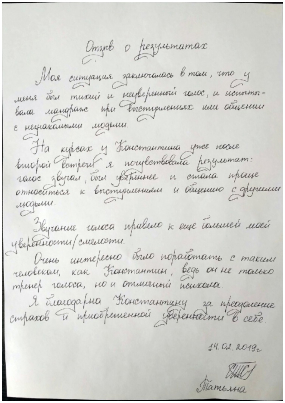 Отзыв о результатах
Моя ситуация заключалась в том, что у
меня был тихий и неуверенный голос, и испыты-
вала мандраж при выступлениях или общении
с незнакомыми людьми
На курсах у Константина уже после
второй встречи я почувствовала результат:
голос звучал, был увереннее и стала проще
относиться к выступлениям и общению с другими
людьми
Звучание голоса привело к ещё большей моей
уверенности/смелости.
Очень интересно было поработать с таким
человеком, как Константин, ведь он не только
тренер голоса, но и отличный психолог.
Я благодарна Константину за преодоление
страхов и приобретенной уверенности в себе
14.02.2019г.
Татьяна